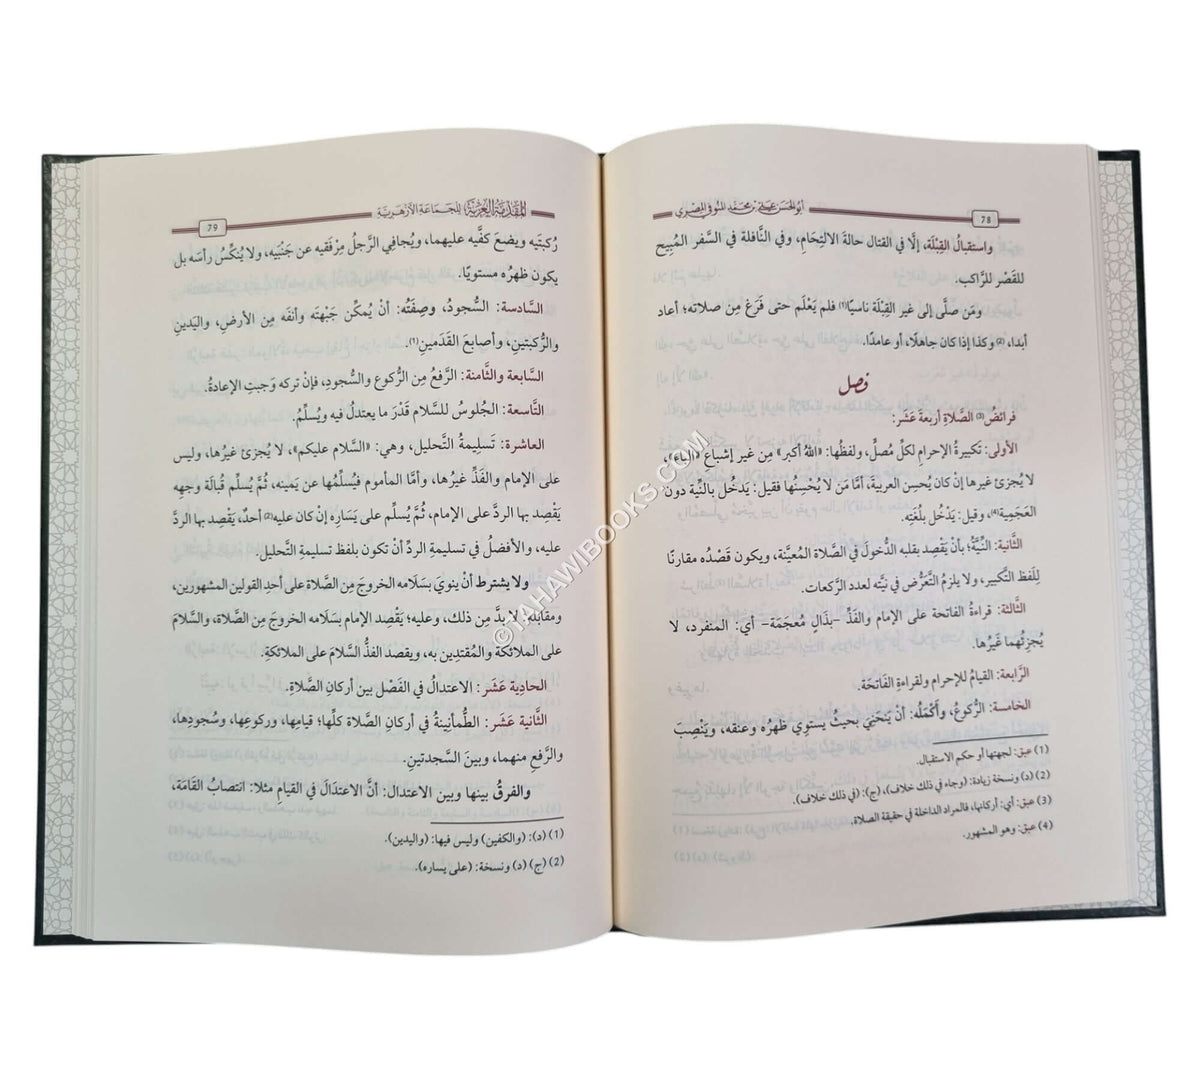 78
أبو الحسن علي بن محمد المنوفي المصري
واستقبالُ القِبْلة، إلَّا في القتال حالةَ الالتِحَام، وفي النَّافلة في السَّفر المُبِيح
للقَصْر للرَّاكب.
ومَن صلَّى إلى غير القِبْلة ناسيًا(1) فلم يَعْلَم حتى فرَغ مِن صلاته؛ أعاد
أبدا،(2) وكذا إذا كان جاهلًا، أو عامدًا.
فصل
فرائضُ(3) الصَّلاةِ أربعةَ عَشَر:
الأولى: تكبيرةُ الإحرامِ لكلِّ مُصلٍّ، ولفظُها: «اللهُ أكبر» مِن غير إشباع «الباء»،
لا يُجزئ غيرها إنْ كان يُحسِن العربيةَ، أمَّا مَن لا يُحْسِنُها فقيل: يَدخُل بالنِّية دون
العَجَمِية(4)، وقيل: يَدْخُل بلُغَتِه.
الثانية: النيَّةُ؛ بأنْ يَقْصِد بقلبه الدُّخولَ في الصَّلاة المُعيَّنة، ويكون قَصْدُه مقارنًا
لِلَفظ التَّكبير، ولا يلزمُ التَّعرُّض في نيَّته لعدد الرَّكعات.
الثَّالثة: قراءةُ الفاتحة على الإمام والفَذِّ -بذَالٍ مُعجَمة- أي: المنفرد، لا
يُجزِئهما غَيرُها.
الرَّابعة: القيامُ للإحرام ولقراءةِ الفَاتحَة.
الخامسة: الرُّكوعُ، وأَكْمَلُه: أنْ يَنْحَنِيَ بحيثُ يستوِي ظهرُه وعنقه، ويَنْصِبَ
(1) عبق: لجهتها أو حكم الاستقبال.
(2) (د) ونسخة زيادة: (وجاء في ذلك خلاف)، (ج): (في ذلك خلاف).
(3) عبق: أي: أركانها، فالمراد الداخلة في حقيقة الصلاة.
(4) عبق: وهو المشهور.
المقدمة العزية للجماعة الأزهرية
79
رُكبتَيه ويضعَ كفَّيه عليهما، ويُجافِي الرَّجلُ مِرْفقيه عن جَنْبَيه، ولا يُنكِّسُ رأسَه بل
يكون ظهرُه مستويًا.
السَّادسة: السُّجودُ، وصِفَتُه: أنْ يُمكِّن جَبْهتَه وأنفَه مِن الأرضِ، واليَدينِ
والرُّكبتينِ، وأصابعَ القَدَمينِ(1).
السَّابعة والثَّامنة: الرَّفعُ مِن الرُّكوع والسُّجودِ، فإنْ تركه وَجبتِ الإعادةُ.
التَّاسعة: الجُلوسُ للسَّلام قَدْرَ ما يعتدلُ فيه ويُسلِّمُ.
العاشرة: تَسليمةُ التَّحليل، وهي: «السَّلام عليكم»، لا يُجزئ غيرُها، وليس
على الإمام والفَذِّ غيرُها، وأمَّا المأموم فيُسلِّمُها عن يَمينه، ثُمَّ يُسلِّم قُبالة وجهِه
يَقْصِد بها الردَّ على الإمام، ثُمَّ يُسلِّم على يَسَارِه إنْ كان عليه(2) أحدٌ، يَقْصِد بها الردَّ
عليه، والأفضلُ في تسليمةِ الردِّ أنْ تكون بلفظ تسليمةِ التَّحليل.
ولا يشترط أنْ ينويَ بسَلَامه الخروجَ مِن الصَّلاة على أحدِ القولين المشهورين،
ومقابلُه لا بدَّ مِن ذلك، وعليه؛ يَقْصِد الإمام بسَلامه الخروجَ مِن الصَّلاة، والسَّلامَ
على الملائكة والمُقتدِين به، ويقصد الفذُّ السَّلامَ على الملائكةِ.
الحادية عَشَر: الاعتدالُ في الفَصْل بين أركانِ الصَّلاة.
الثَّانية عَشَر: الطُّمأنِينةُ في أركان الصَّلاة كلِّها؛ قيامِها، وركوعِها، وسُجودِها،
والرَّفعِ منهما، وبينَ السَّجدتينِ.
والفرقُ بينها وبين الاعتدال: أنَّ الاعتدَال في القيامِ مثلا: انتصابُ القَامَة،
(1) (د): (والكفين) وليس فيها: (واليدين).
(2) (ج) (د) ونسخة: (على يساره).
©TAHAWIBOOKS.COM